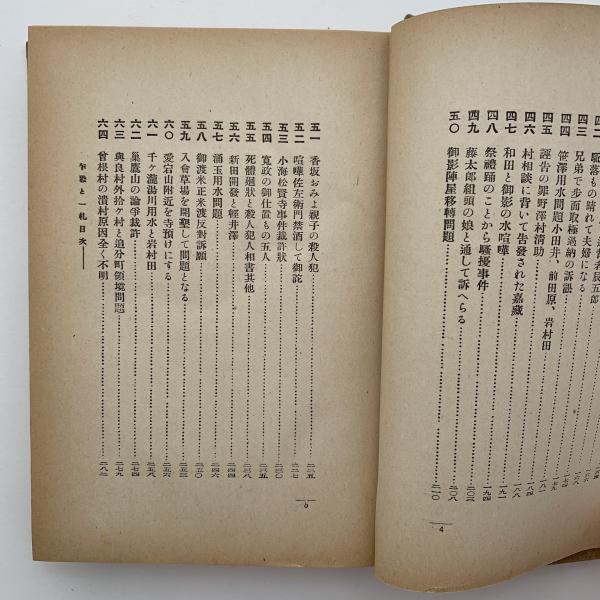 駈落もの晴れて夫婦になる
四三 兄弟で歩面取極過納の訴訟
四四 笹澤用水問題小田井、前田原、岩村田
四五 誣告の罪野澤村清助 一八一
四六 村相談に背いて告發された嘉藏 一八六
四七 和田と御影の水喧嘩 一九一
四八 祭禮踊のことから騷擾事件 一九四
四九 藤太郎組頭の娘と通して訴へらる 二〇八
五〇 御影陣屋移轉問題 二一〇
4
五一 香坂おみよ親子の殺人犯 二一五
五二 喧嘩佐左衞門禁酒して御詫 二二七
五三 小海松賢寺事件裁許狀 二三〇
五四 寬政の御仕置もの五人 二三五
五五 死體廻狀と殺人犯人相書其他 二三八
五六 新田開發と輕井澤 二四四
五七 涌玉用水問題
五八 御渡米正米渡反對訴願 二五〇
五九 入會草場を開墾して問題となる 二五三
六〇 愛宕山附近を寺預けにする 二五六
六一 千ヶ瀧湯川用水と岩村田 二五八
六二 巢鷹山の論爭裁許 二七四
六三 與良村外拾ケ村と追分町領境問題 二七九
六四 曾根村の潰村原因全く不明 二八二
乍恐と一札目次
5